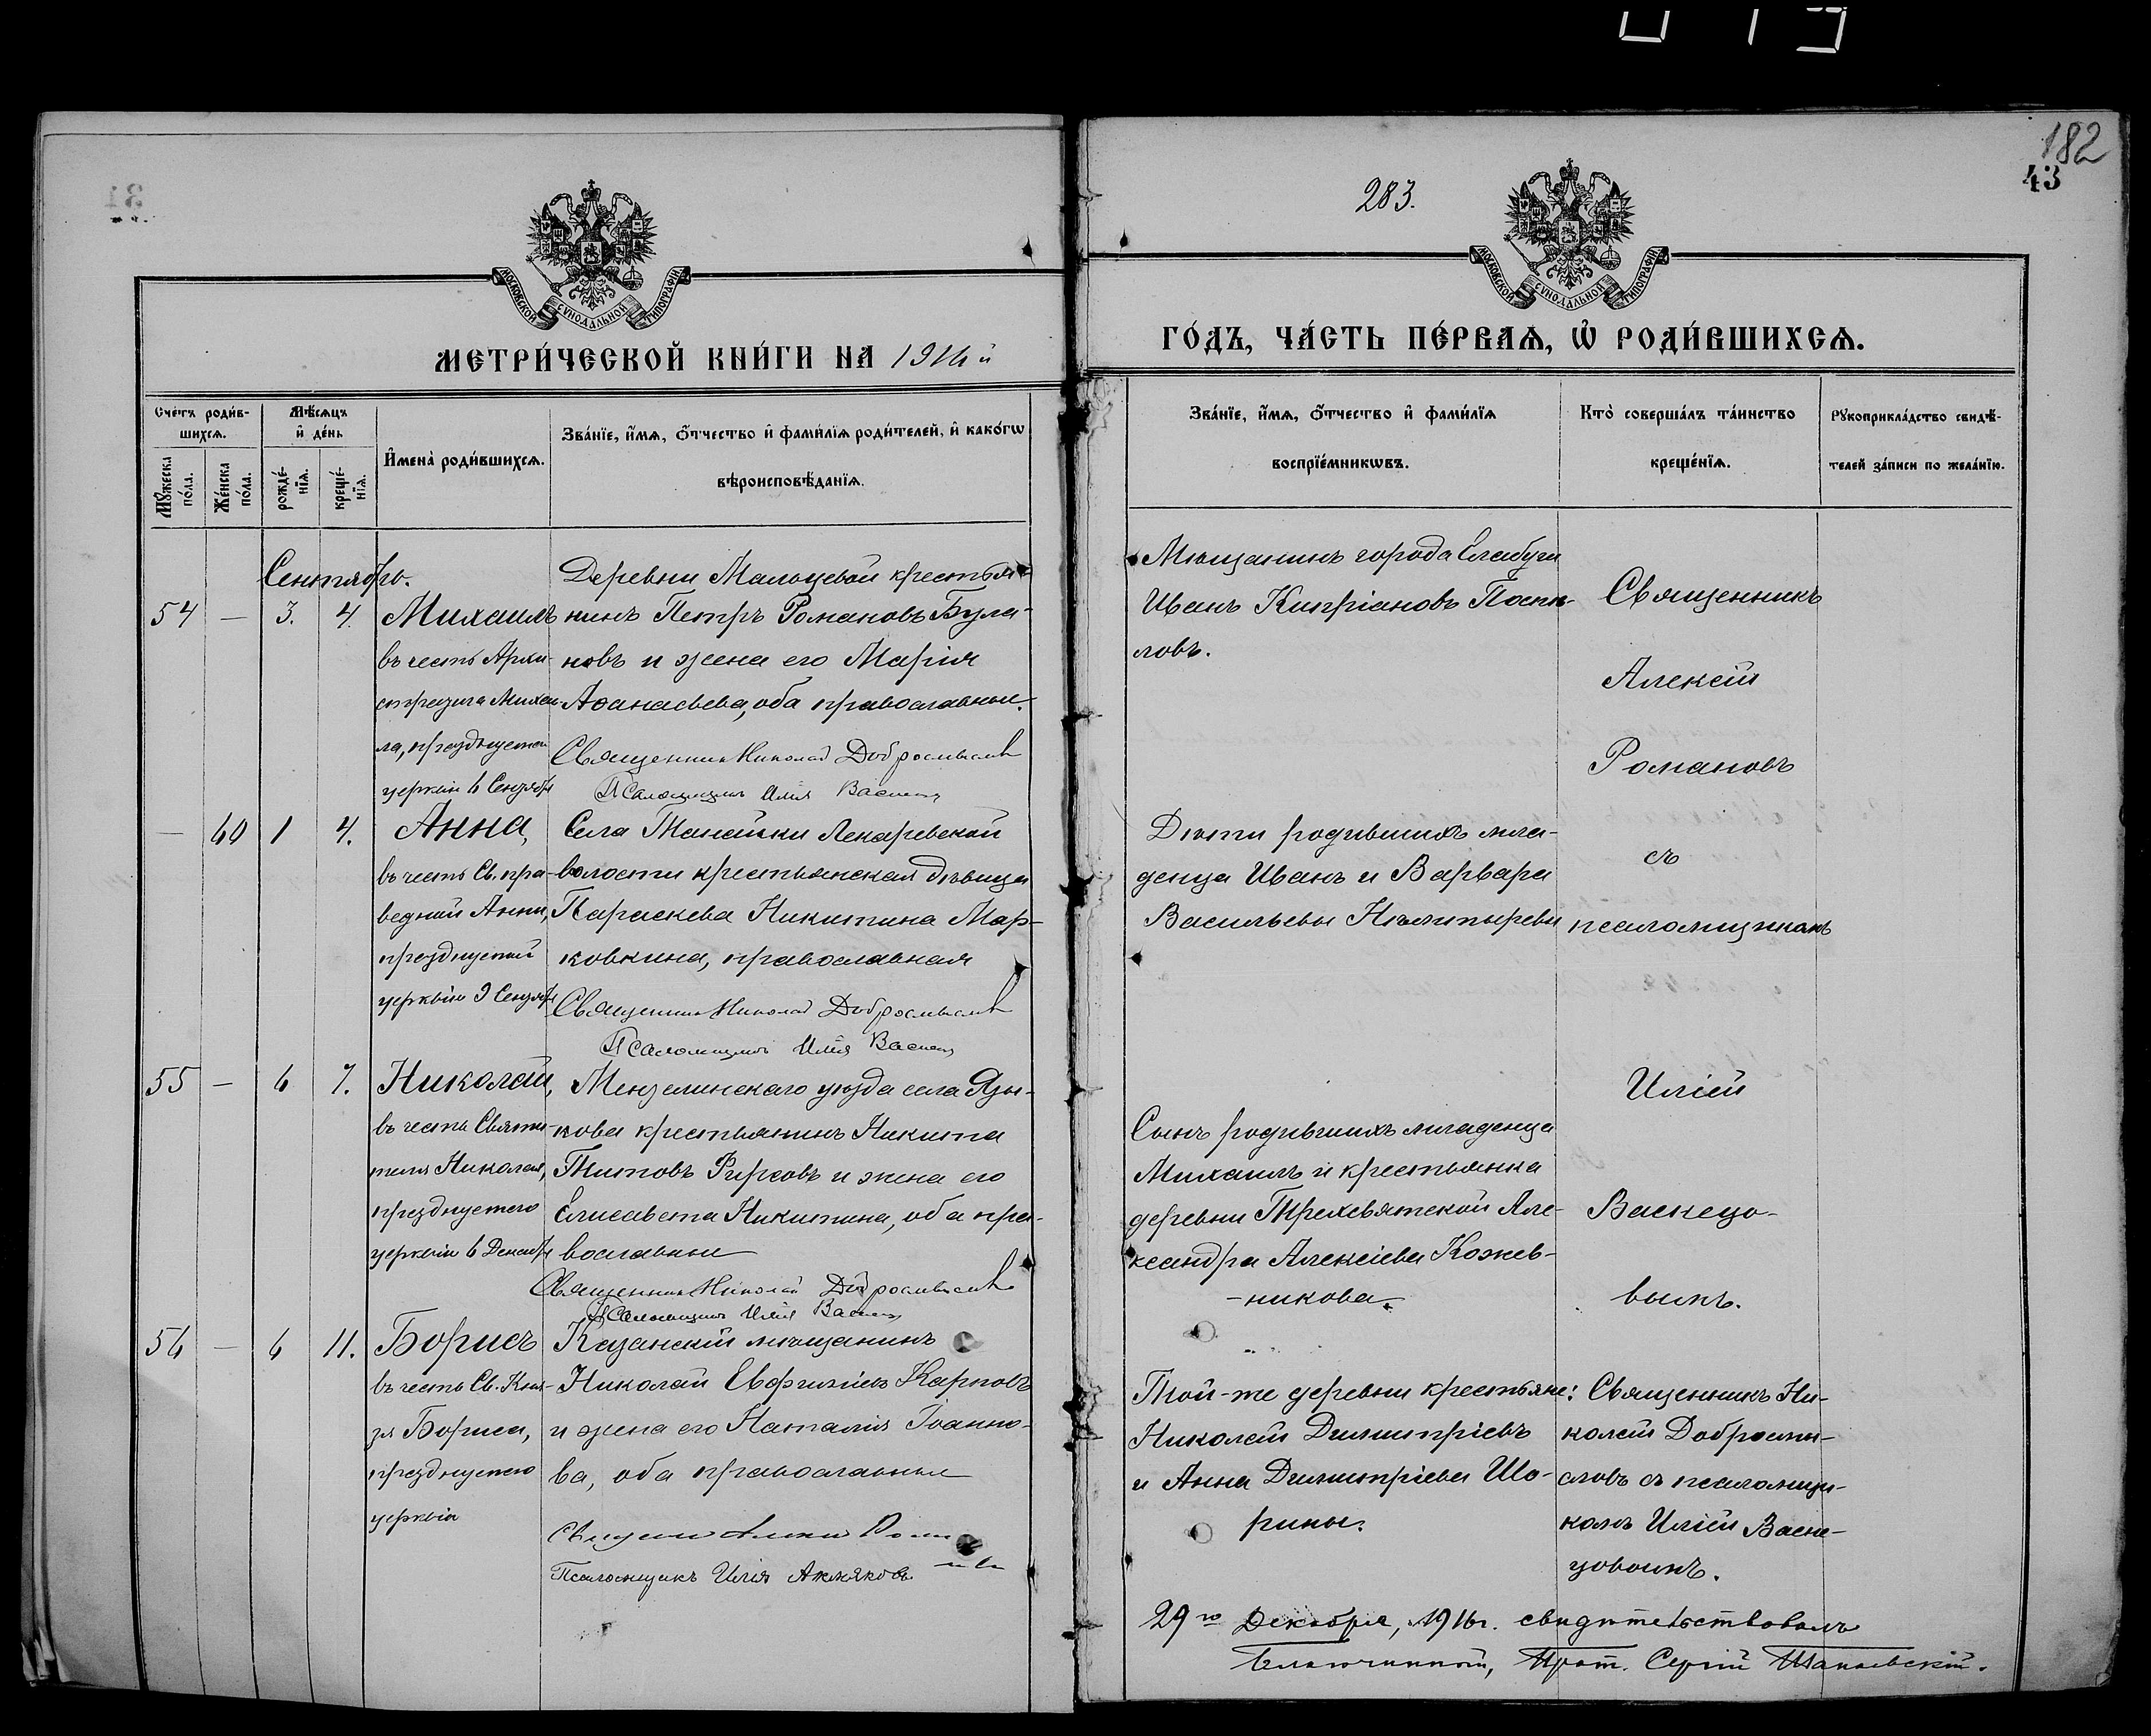 182
43
283.
МОСКОВСКОЙ СѴНОДАЛЬНОЙ ТИПОГРАФІИ
МОСКОВСКОЙ СѴНОДАЛЬНОЙ ТИПОГРАФІИ
МЕТРИ́ЧЕСКОЙ КНИ́ГИ НА 1916й
ГО́ДЪ, ЧА́СТЬ ПЕ́РВАѦ, Ѡ҆ РОДИ́ВШИХСѦ.
Сче́тъ роди́в-
шихсѧ.
Мꙋ́жеска
по́ла.
Же́нска
по́ла.
Мѣ́сѧцъ
и҆ де́нь
рожде́-
нїѧ.
креще́-
нїѧ.
И҆мена̀ роди́вшихсѧ.
Зва́нїе, и҆́мѧ, ѻ҆́тчество и҆ фами́лїѧ роди́телей, и҆ како́гѡ
вѣроисповѣ́данїѧ.
Зва́нїе, и҆́мѧ, ѻ҆́тчество и҆ фами́лїѧ
воспрїе́мникѡвъ.
Кто̀ соверша́лъ та́инство
креще́нїѧ.
Рꙋкоприкла́дство свидѣ́-
телей за́писи по жела́нїю.
Сентябрь.
54 — 3. 4.
Михаилъ
въ честь Архи-
стратига Михаи-
ла, празднуемаго
церквію 6 Сентября
Деревни Мальцевой крестья-
нинъ Петръ Романовъ Була-
новъ и жена его Марія
Аѳанасьева, оба православные.
Священникъ Николай Добросмысловъ
Псаломщикъ Илія Васнецовъ
Мѣщанинъ города Елабуги
Иванъ Кипріановъ Поспѣ-
ловъ.
Священникъ
Алексій
Романовъ
съ
псаломщикомъ
Иліей
Васнецо-
вымъ.
— 60 1 4.
Анна,
въ честь Св. пра-
ведной Анны,
празднуемой
церквію 9 Сентября
Села Танайки Лекаревской
волости крестьянская дѣвица
Параскева Никитина Мар-
ковкина, православная
Священникъ Николай Добросмысловъ
Псаломщикъ Илія Васнецовъ
Дѣти родившихъ мла-
денца Иванъ и Варвара
Васильевы
55 — 6 7.
Николай,
въ честь Святи-
теля Николая,
празднуемаго
церквію 6 Декабря
Мензелинскаго уѣзда села Язы-
кова крестьянинъ Никита
Титовъ Фирсовъ и жена его
Елисавета Никитина, оба пра-
вославные
Священникъ Николай Добросмысловъ
Псаломщикъ Илія Васнецовъ
Сынъ родившихъ младенца
Михаилъ и крестьянка
деревни Трехсвятской Але-
ксандра Алексіева Кожев-
никова.
56 — 6 11.
Борисъ
въ честь Св. Кня-
зя Бориса,
празднуемаго
церквію
Казанскій мѣщанинъ
Николай Евфиміевъ Карповъ
и жена его Наталія Іоанно-
ва, оба православные
Псаломщикъ Илія
Той-же деревни крестьяне:
Николай Димитріевъ
и Анна Димитріева Шо-
рины.
Священникъ Ни-
колай Добросмы-
словъ съ псаломщи-
комъ Иліей Васне-
цовымъ.
29го Декабря, 1916г. свидѣтельствовалъ
Благочинный, Прот. Сергій